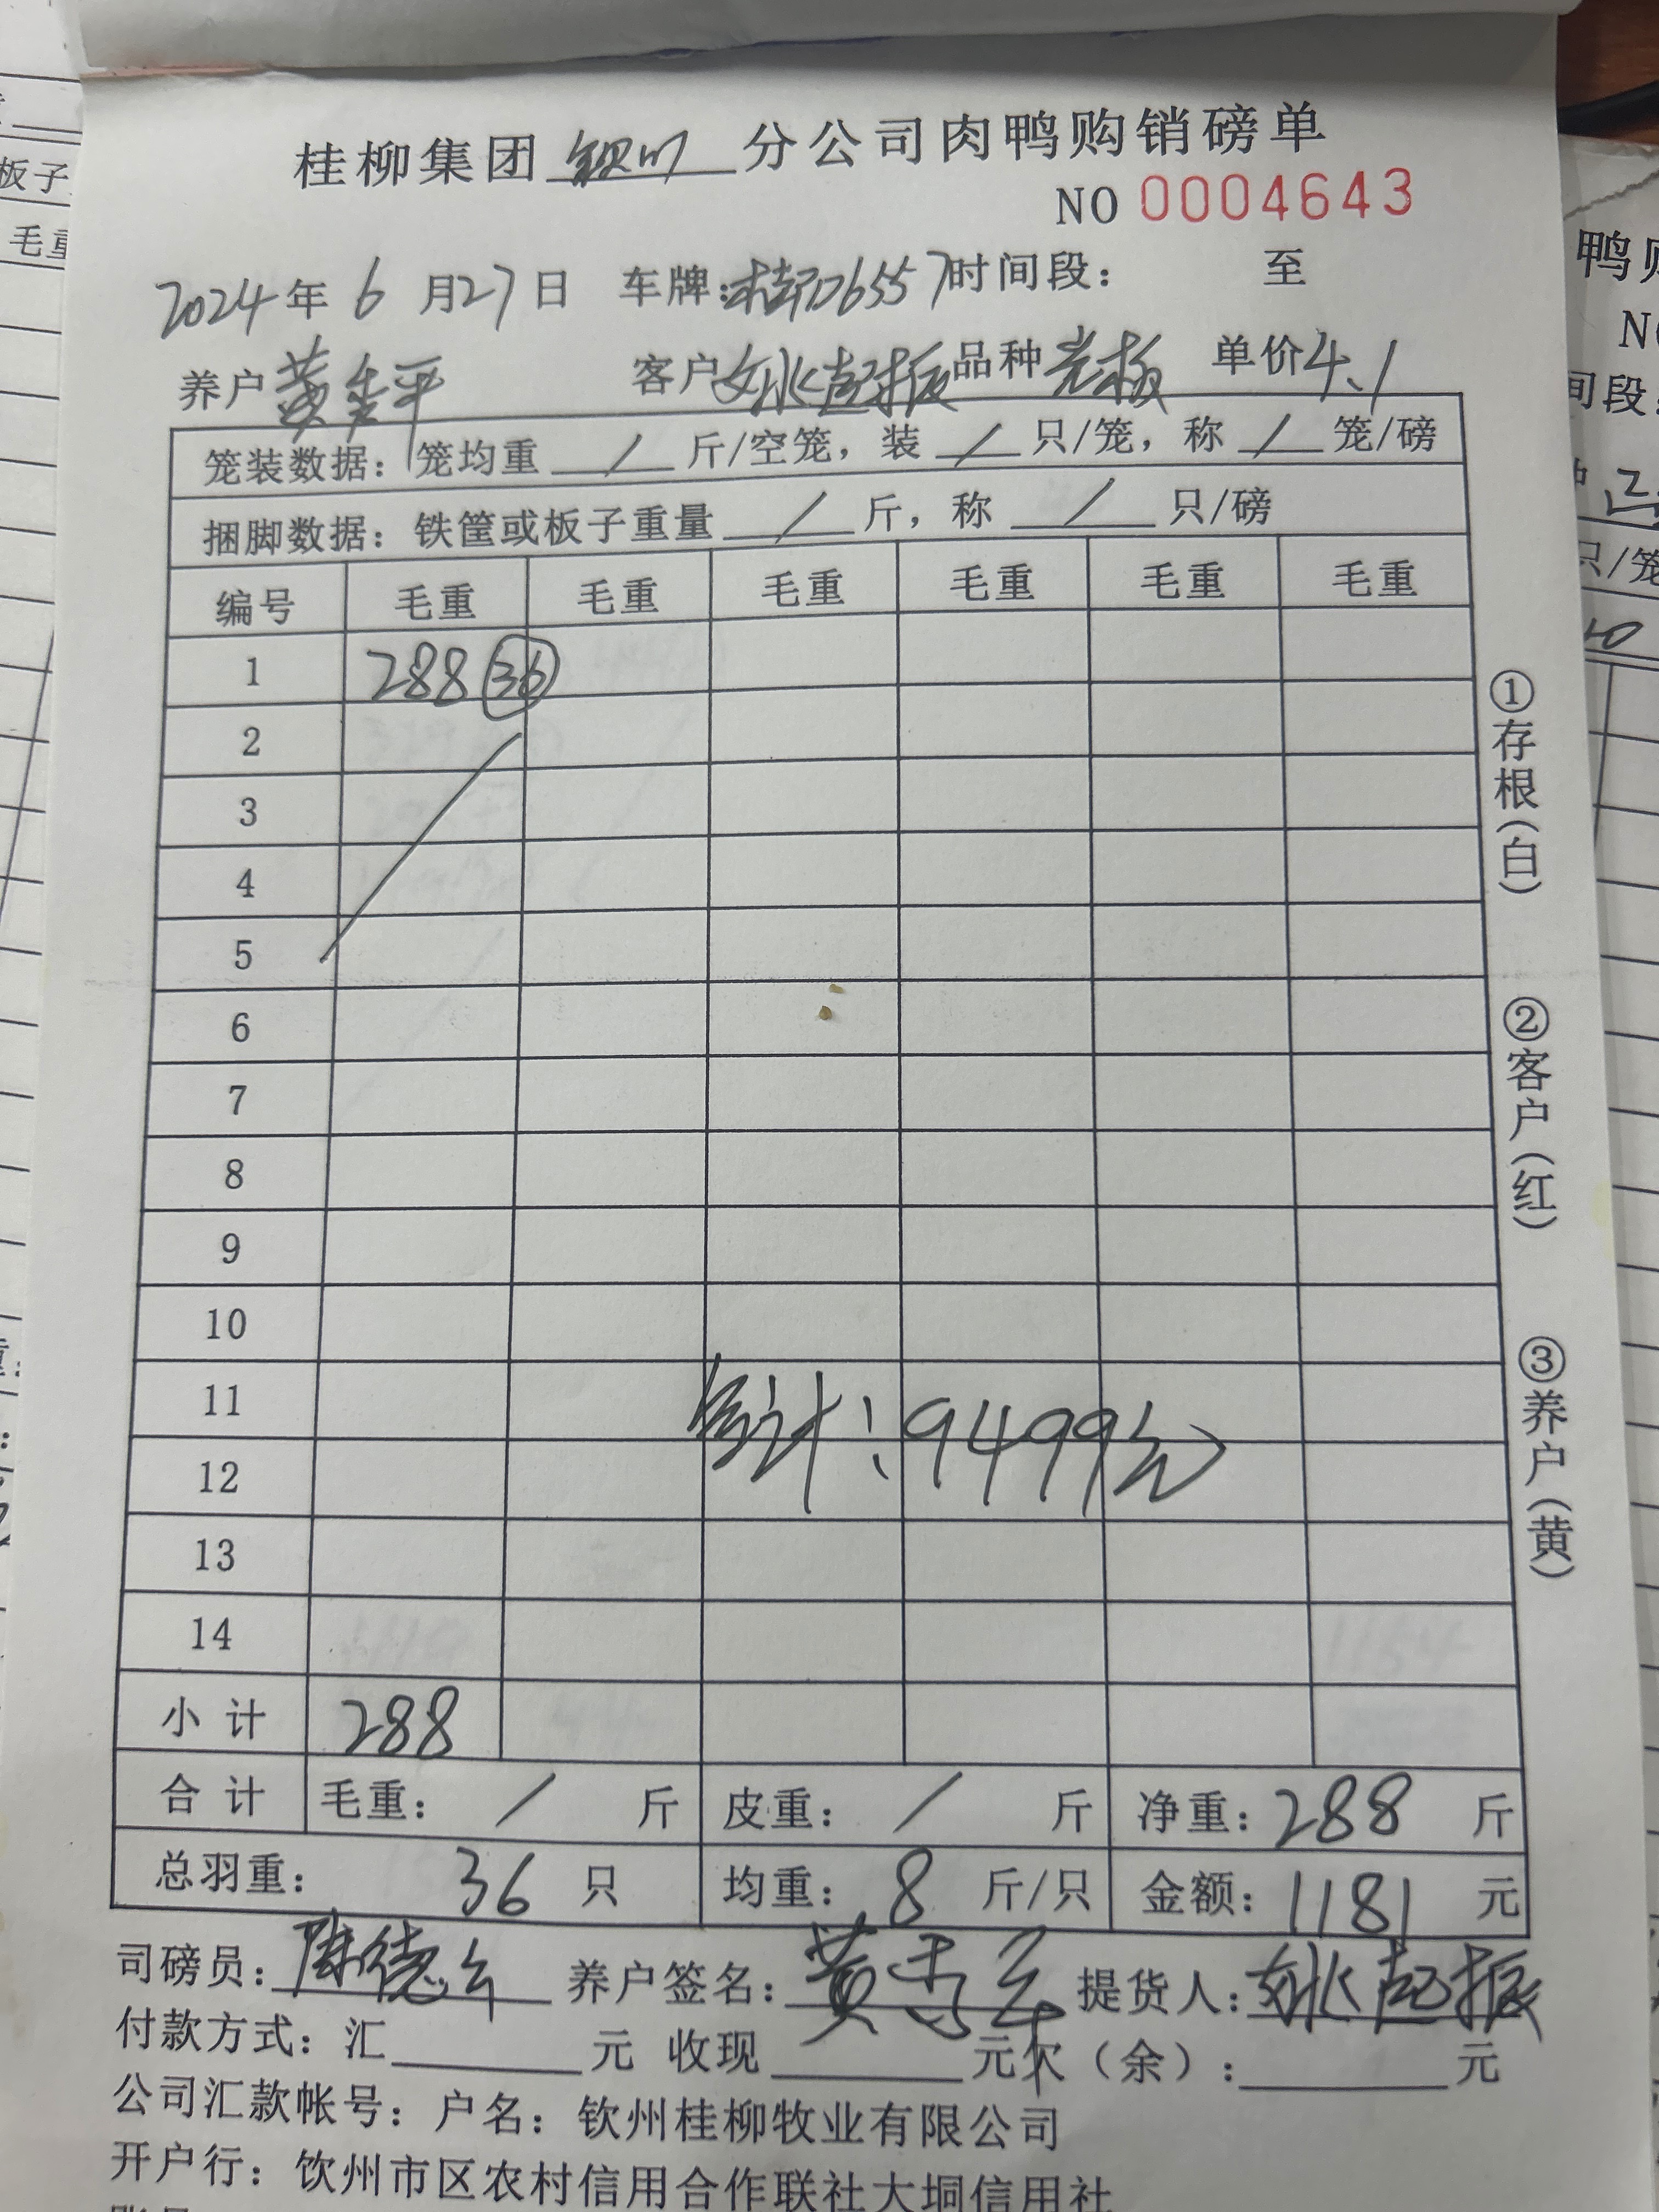 桂柳集团 钦州 分公司肉鸭购销磅单
NO 0004643
2024年 6 月27日 车牌:桂D6557 时间段: 至
养户 黄 平 客户 姚起振 品种 光板 单价4.1
笼装数据: 笼均重 / 斤/空笼, 装 / 只/笼, 称 / 笼/磅
捆脚数据: 铁筐或板子重量 / 斤, 称 / 只/磅
编号 毛重 毛重 毛重 毛重 毛重 毛重
1 288 36
2
3
4
5
6
7
8
9
10
11
合计:9499元
12
13
14
小计 288
合计 毛重: / 斤 皮重: / 斤 净重: 288 斤
总羽重: 36 只 均重: 8 斤/只 金额: 1181 元
司磅员: 陈德 养户签名: 黄 平 提货人: 姚起振
付款方式: 汇 元 收现 元 欠(余): 元
公司汇款帐号: 户名: 钦州桂柳牧业有限公司
开户行: 饮州市区农村信用合作联社大垌信用社
①存根(白)
②客户(红)
③养户(黄)
板子
毛重
鸭购
间段:
只/笼